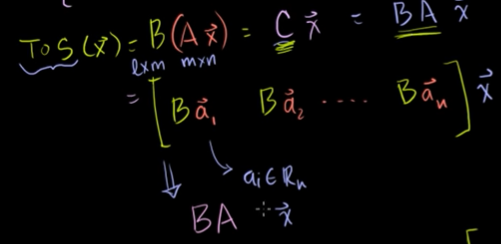 ToS(x⃗) = B(Ax⃗) = Cx⃗ = BA x⃗
l×m m×n
= [Ba⃗₁ Ba⃗₂ ..... Ba⃗ₙ] x⃗
aᵢ ∈ Rₙ
BA x⃗